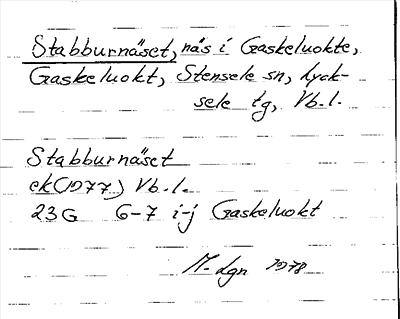 Stabburnäset, näs i Gaskeluokte,
Gaskeluokt, Stensele sn, Lyck-
sele tg, Vb.l.
Stabburnäset
ek(1977) Vb.l.
23G 6-7 i-j Gaskeluokt
M-dgn 1978